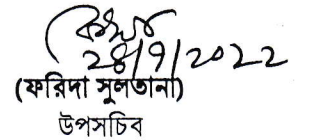 28/9/2022
(ফরিদা সুলতানা)
উপসচিব